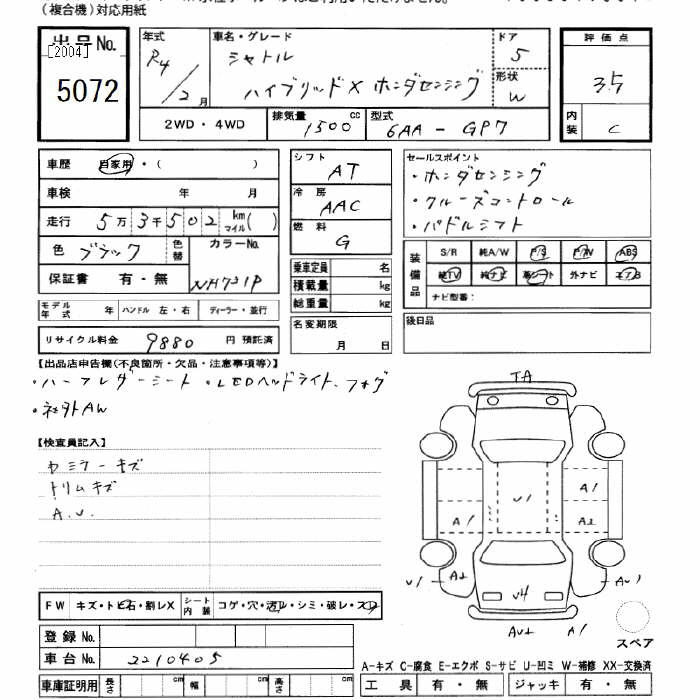 (複合機)対応用紙
出品No.
[2004]
5072
年式
R4/2月
車名・グレード
シャトル
ハイブリッドX ホンダセンシング
ドア
5
形状
W
評価点
3.5
内装
C
2WD・4WD
排気量
1500 cc
型式
6AA - GP7
車歴 自家用・( )
車検 年 月
走行 5万3千502 km マイル( )
色 ブラック 色替 カラーNo.
保証書 有・無 NH731P
モデル年式 年 ハンドル 左・右 ディーラー・並行
リサイクル料金 9880 円 預託済
シフト
AT
冷房
AAC
燃料
G
乗車定員 名
積載量 kg
総重量 kg
名変期限
月 日
セールスポイント
・ホンダセンシング
・クルーズコントロール
・パドルシフト
装備品
S/R 純A/W P/S P/W ABS
純TV 純ナビ 革シート 外ナビ エアB
ナビ型番:
後日品
【出品店申告欄(不良箇所・欠品・注意事項等)】
・ハーフレザーシート ・LEDヘッドライト、フォグ
・社外AW
【検査員記入】
トリムキズ
A.U.
TA
U1
A1
A1
A2
U1
A2
U4
AU1
AU2
A1
スペア
FW キズ・トビ石・割レX
シート内装 コゲ・穴・汚レ・シミ・破レ・スレ
登録No.
車台No. 2210405
車庫証明用 長さ cm 幅 cm 高さ cm
A-キズ C-腐食 E-エクボ S-サビ U-凹ミ W-補修 XX-交換済
工具 有・無 ジャッキ 有・無